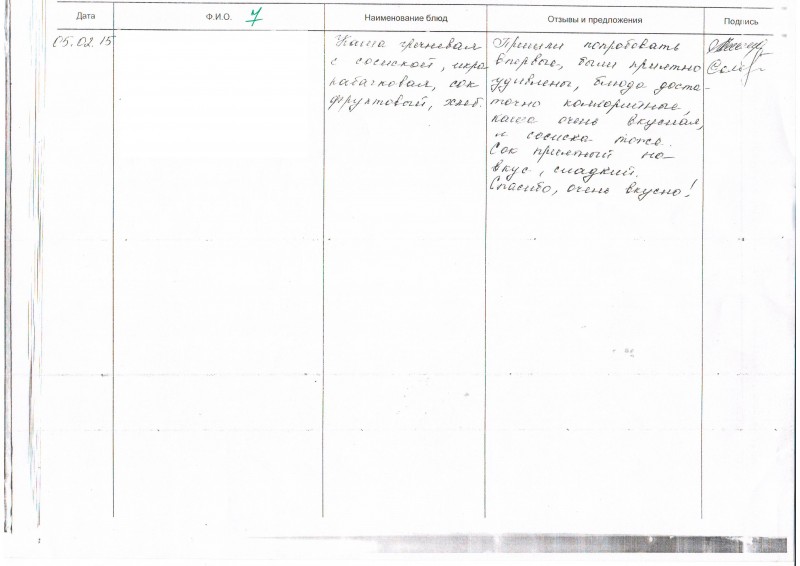 Дата Ф.И.О. 7 Наименование блюд Отзывы и предложения Подпись
05.02.15
Каша гречневая
с сосиской, икра
кабачковая, сок
фруктовый, хлеб.
Пришли попробовать
впервые, были приятно
удивлены, блюда доста-
точно калорийные,
каша очень вкусная,
и сосиска тоже.
Сок приятный на
вкус, сладкий.
Спасибо, очень вкусно!